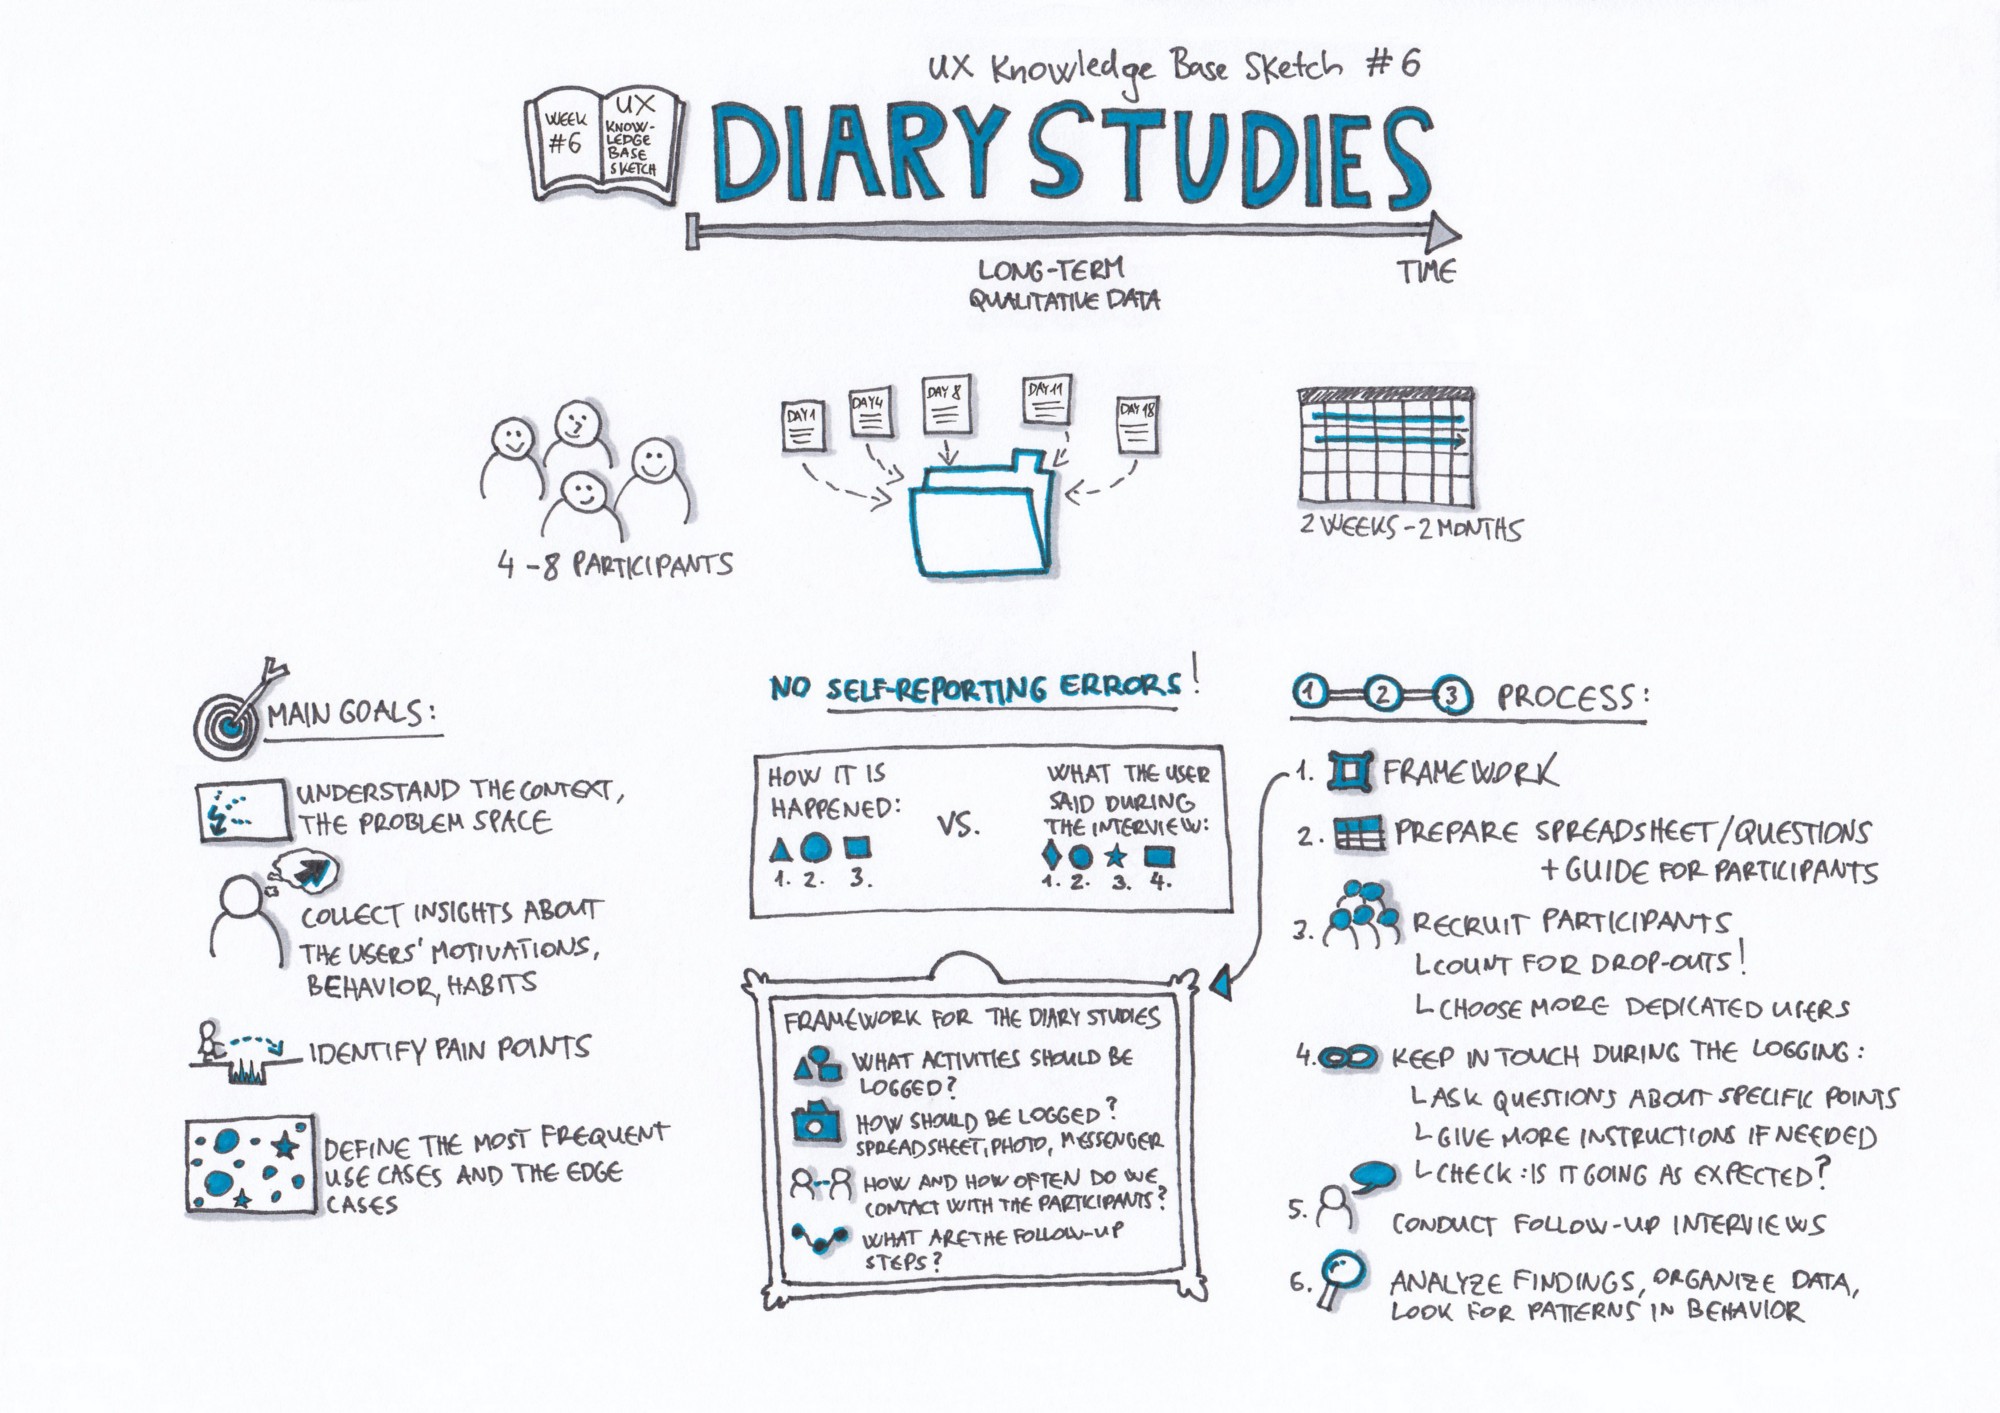 UX Knowledge Base Sketch #6
WEEK
#6
UX
KNOW-
LEDGE
BASE
SKETCH
DIARY STUDIES
LONG-TERM
QUALITATIVE DATA
TIME
DAY 1
DAY 4
DAY 8
DAY 11
DAY 18
4-8 PARTICIPANTS
2 WEEKS - 2 MONTHS
MAIN GOALS:
UNDERSTAND THE CONTEXT,
THE PROBLEM SPACE
COLLECT INSIGHTS ABOUT
THE USERS' MOTIVATIONS,
BEHAVIOR, HABITS
IDENTIFY PAIN POINTS
DEFINE THE MOST FREQUENT
USE CASES AND THE EDGE
CASES
NO SELF-REPORTING ERRORS!
HOW IT IS
HAPPENED:
1. 2. 3.
VS.
WHAT THE USER
SAID DURING
THE INTERVIEW:
1. 2. 3. 4.
FRAMEWORK FOR THE DIARY STUDIES
WHAT ACTIVITIES SHOULD BE
LOGGED?
HOW SHOULD BE LOGGED?
SPREADSHEET, PHOTO, MESSENGER
HOW AND HOW OFTEN DO WE
CONTACT WITH THE PARTICIPANTS?
WHAT ARE THE FOLLOW-UP
STEPS?
1 2 3 PROCESS:
1. FRAMEWORK
2. PREPARE SPREADSHEET/QUESTIONS
+ GUIDE FOR PARTICIPANTS
3. RECRUIT PARTICIPANTS
COUNT FOR DROP-OUTS!
CHOOSE MORE DEDICATED USERS
4. KEEP IN TOUCH DURING THE LOGGING:
ASK QUESTIONS ABOUT SPECIFIC POINTS
GIVE MORE INSTRUCTIONS IF NEEDED
CHECK: IS IT GOING AS EXPECTED?
5. CONDUCT FOLLOW-UP INTERVIEWS
6. ANALYZE FINDINGS, ORGANIZE DATA,
LOOK FOR PATTERNS IN BEHAVIOR